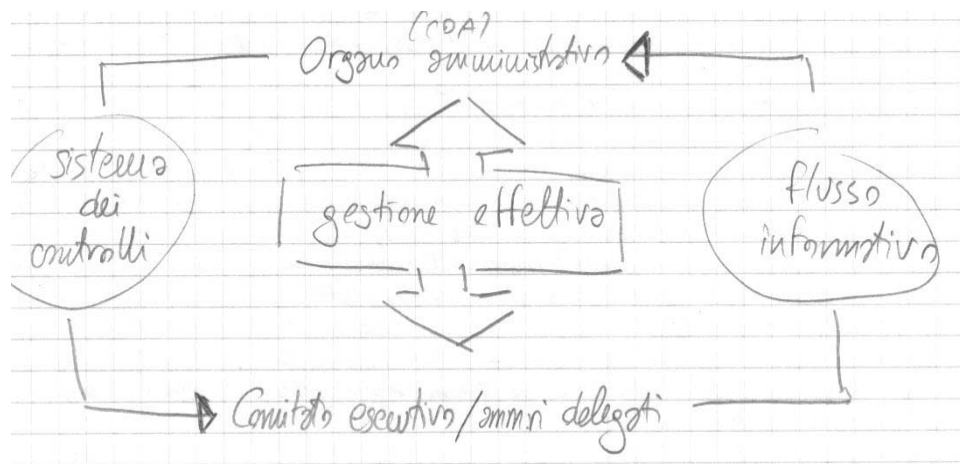 (CDA)
Organo amministrativo
sistema
dei
controlli
gestione effettiva
flusso
informativo
Comitato esecutivo/amm.ri delegati